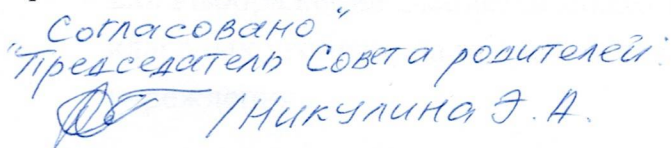 Согласовано"
"Председатель Совета родителей:
/Никулина Э.А.